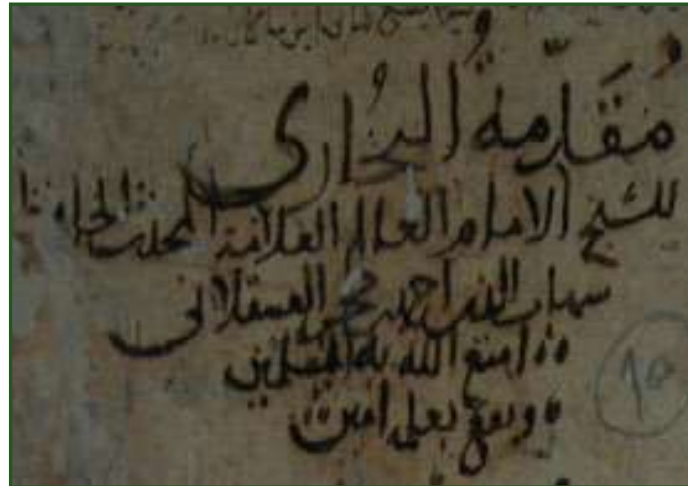 مُقَدِّمَةُ البُخَارى
للشيخ الامام العالم العلامة المحدث الحافظ
شهاب الدين احمد بن حجر العسقلانى
امتع الله به المسلمين
ونفع بعلمه امين
١٥